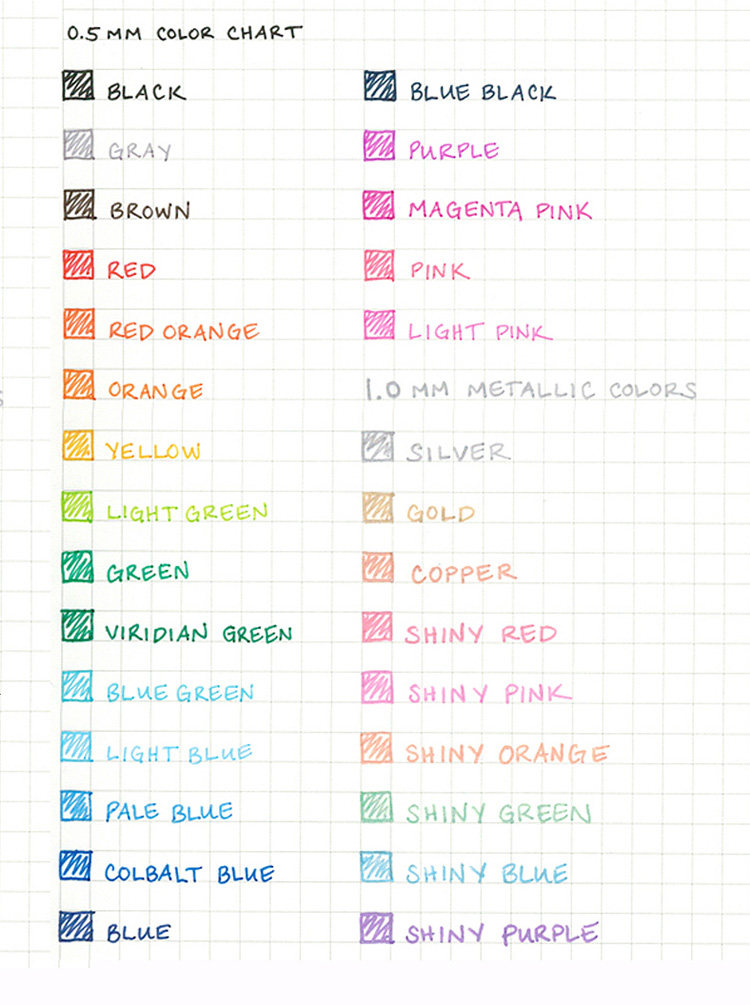 0.5 MM COLOR CHART
BLACK
GRAY
BROWN
RED
RED ORANGE
ORANGE
YELLOW
LIGHT GREEN
GREEN
VIRIDIAN GREEN
BLUE GREEN
LIGHT BLUE
PALE BLUE
COLBALT BLUE
BLUE
BLUE BLACK
PURPLE
MAGENTA PINK
PINK
LIGHT PINK
1.0 MM METALLIC COLORS
SILVER
GOLD
COPPER
SHINY RED
SHINY PINK
SHINY ORANGE
SHINY GREEN
SHINY BLUE
SHINY PURPLE